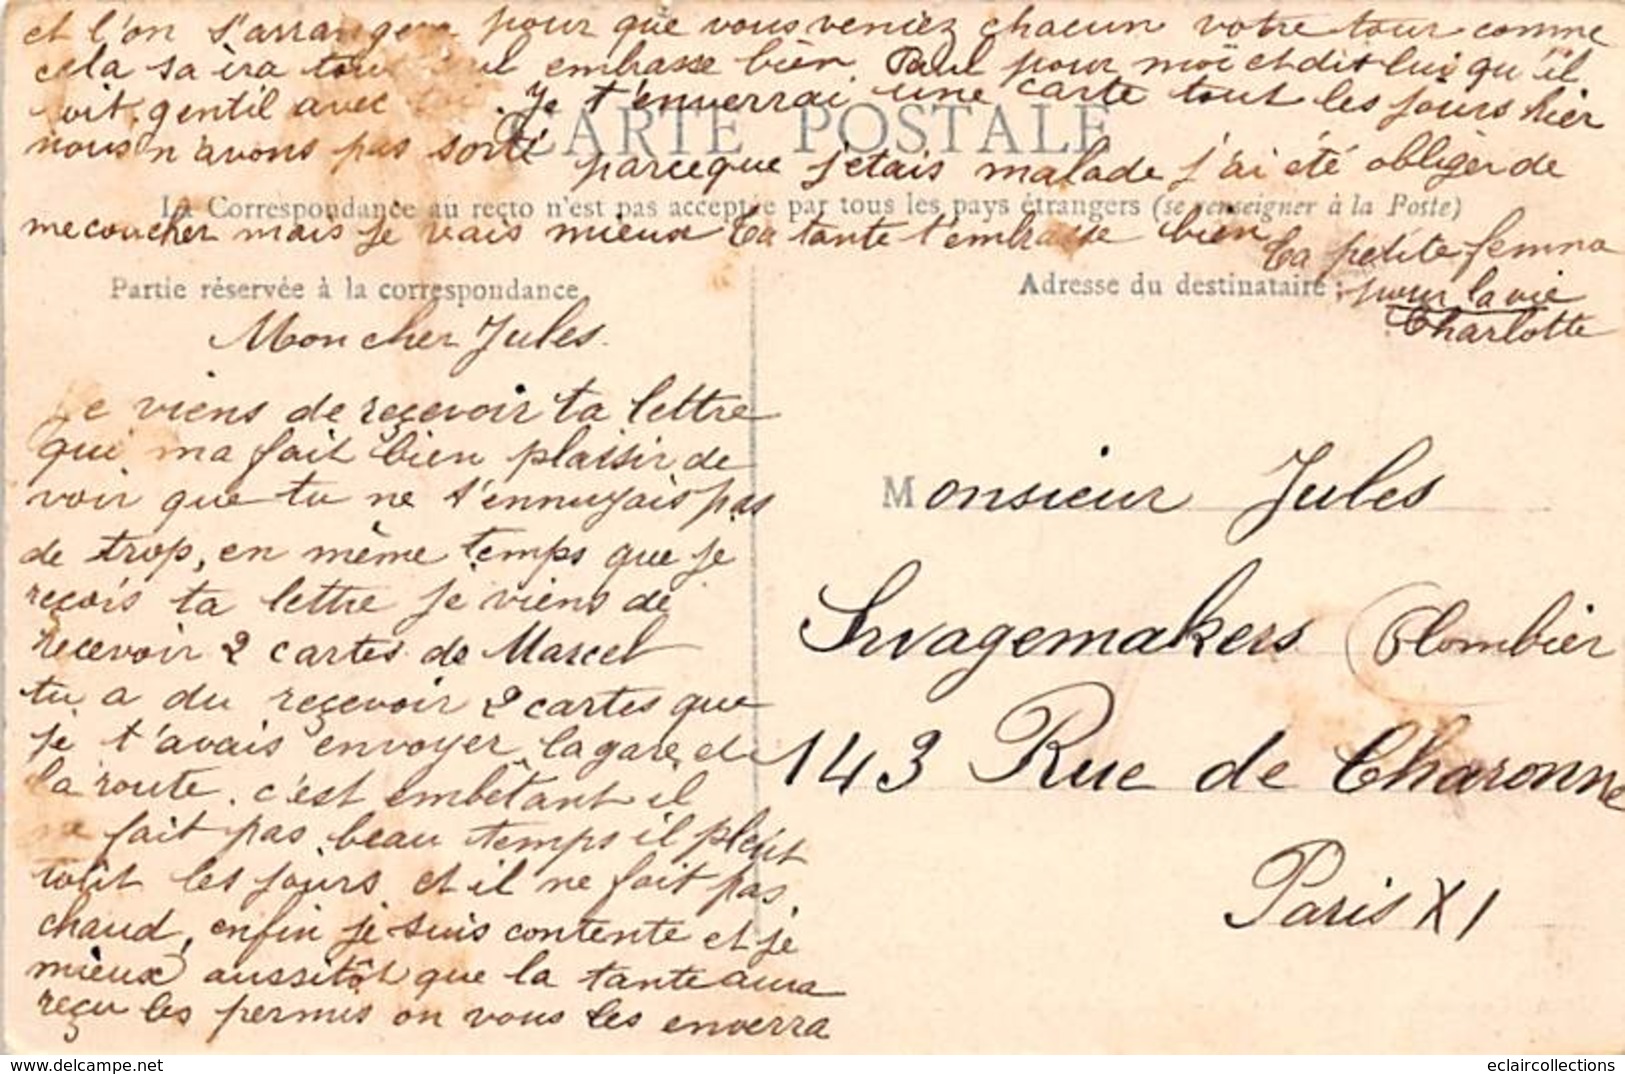 Mon cher Jules.
Je viens de reçevoir ta lettre
qui ma fait bien plaisir de
voir que tu ne t'ennuyais pas
de trop, en même temps que je
reçois ta lettre je viens de
recevoir 2 cartes de Marcel
tu a du reçevoir 2 cartes que
je t'avais envoyer la gare et
la route. c'est embêtant il
ne fait pas beau temps il pleut
tout les jours et il ne fait pas
chaud, enfin je suis contente et je
mieux aussitôt que la tante aura
reçu les permis on vous les enverra
et l'on s'arrangera pour que vous veniez chacun votre tour comme
cela sa ira tout seul embrasse bien Paul pour moi et dit lui qu'il
soit gentil avec toi. Je t'enverrai une carte tout les jours hier
nous n'avons pas sorti parceque j'etais malade j'ai été obliger de
me coucher mais je vais mieux Ta tante t'embrasse bien
Ta petite femme
pour la vie
Charlotte
CARTE POSTALE
La Correspondance au recto n'est pas acceptée par tous les pays étrangers (se renseigner à la Poste)
Partie réservée à la correspondance
Adresse du destinataire :
Monsieur Jules
Plombier
143 Rue de Charonne
Paris XI
Delcampe.net
eclaircollections